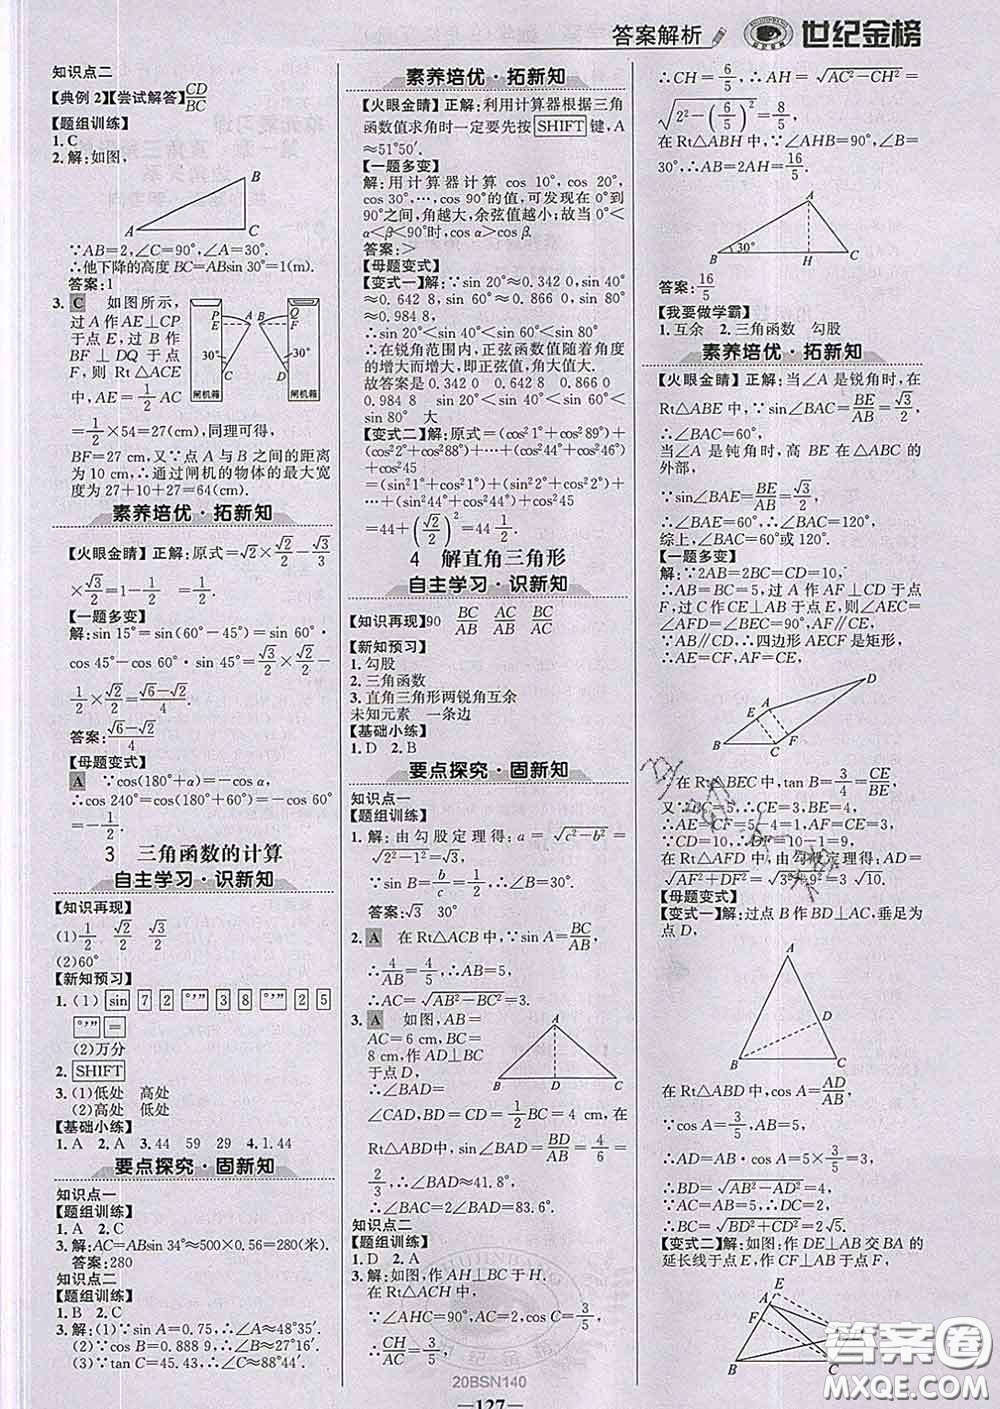 答案解析 世纪金榜
知识点二
【典例2】【尝试解答】CD/BC
【题组训练】
1.C
2.解:如图,
B
A C
∵AB=2,∠C=90°,∠A=30°.
∴他下降的高度 BC=ABsin 30°=1(m).
答案:1
3. C 如图所示,
过 A 作 AE⊥CP
于点 E,过 B 作
BF⊥DQ 于点
F,则 Rt△ACE
中,AE=1/2 AC
P A B Q
E F
30° 30°
闸机箱 闸机箱
=1/2×54=27(cm),同理可得,
BF=27 cm,又∵点 A 与 B 之间的距离
为 10 cm,∴通过闸机的物体的最大宽
度为 27+10+27=64(cm).
素养培优·拓新知
【火眼金睛】正解:原式=√2×√2/2-√3/3
×√3/2=1-1/2=1/2.
【一题多变】
解:sin 15°=sin(60°-45°)=sin 60°·
cos 45°-cos 60°·sin 45°=√3/2×√2/2-
1/2×√2/2=(√6-√2)/4.
答案:(√6-√2)/4
【母题变式】
A ∵cos(180°+α)=-cos α,
∴cos 240°=cos(180°+60°)=-cos 60°
=-1/2.
3 三角函数的计算
自主学习·识新知
【知识再现】
(1)1/2 √2/2 √3/2
(2)60°
【新知预习】
1.(1) sin 7 2 °′″ 3 8 °′″ 2 5
°′″ =
(2)万分
2. SHIFT
3.(1)低处 高处
(2)高处 低处
【基础小练】
1.A 2.A 3.44 59 29 4.1.44
要点探究·固新知
知识点一
【题组训练】
1.A 2.C
3.解:AC=ABsin 34°≈500×0.56=280(米).
答案:280
知识点二
【题组训练】
1.B 2.C
3.解:(1)∵sin A=0.75,∴∠A≈48°35′.
(2)∵cos B=0.888 9,∴∠B≈27°16′.
(3)∵tan C=45.43,∴∠C≈88°44′.
素养培优·拓新知
【火眼金睛】正解:利用计算器根据三角
函数值求角时一定要先按 SHIFT 键,A
≈51°50′.
【一题多变】
解:用计算器计算 cos 10°,cos 20°,
cos 30°,…,cos 90°的值,可发现在0°到
90°之间,角越大,余弦值越小;故当0°<
α<β<90°时,cos α>cos β.
答案:>
【母题变式】
【变式一】解:∵sin 20°≈0.342 0,sin 40°
≈0.642 8,sin 60°≈0.866 0,sin 80°
≈0.984 8,
∴sin 20°<sin 40°<sin 60°<sin 80°,
∴在锐角范围内,正弦函数值随着角度
的增大而增大,即正弦值大,角大值大.
故答案是:0.342 0 0.642 8 0.866 0
0.984 8 sin 20°<sin 40°<sin 60°<
sin 80° 大
【变式二】解:原式=(cos²1°+cos²89°)+
(cos²2°+cos²88°)+…+(cos²44°+cos²46°)
+cos²45
=(sin²1°+cos²1°)+(sin²2°+cos²2°)+
…+(sin²44°+cos²44°)+cos²45
=44+(√2/2)²=44 1/2.
4 解直角三角形
自主学习·识新知
【知识再现】90 BC/AB AC/AB BC/AC
【新知预习】
1.勾股
2.三角函数
3.直角三角形两锐角互余
未知元素 一条边
【基础小练】
1.D 2.B
要点探究·固新知
知识点一
【题组训练】
1.解:由勾股定理得:a=√(c²-b²)=
√(2²-1²)=√3.
∵sin B=b/c=1/2,∴∠B=30°.
答案:√3 30°
2. A 在 Rt△ACB 中,∵sin A=BC/AB,
∴4/AB=4/5,∴AB=5,
∴AC=√(AB²-BC²)=3.
3. A 如图,AB=
AC=6 cm,BC=
8 cm,作 AD⊥BC
于点 D,
∴∠BAD=
A
B D C
∠CAD,BD=CD=1/2 BC=4 cm,在
Rt△ABD中,sin∠BAD=BD/AB=4/6=
2/3,∴∠BAD≈41.8°,
∴∠BAC=2∠BAD=83.6°.
知识点二
【题组训练】
1.D 2.A
3.解:如图,作 AH⊥BC 于 H.
在 Rt△ACH 中,
∵∠AHC=90°,AC=2,cos C=3/5,
∴CH/AC=3/5,
∴CH=6/5,∴AH=√(AC²-CH²)=
√(2²-(6/5)²)=8/5,
在 Rt△ABH 中,∵∠AHB=90°,∠B=
30°,∴AB=2AH=16/5.
A
30°
B H C
答案:16/5
【我要做学霸】
1.互余 2.三角函数 勾股
素养培优·拓新知
【火眼金睛】正解:当∠A 是锐角时,在
Rt△ABE 中,∵sin∠BAC=BE/AB=√3/2,
∴∠BAC=60°,
当∠A 是钝角时,高 BE 在△ABC 的
外部,
∵sin∠BAE=BE/AB=√3/2,
∴∠BAE=60°,∴∠BAC=120°,
综上,∠BAC=60°或120°.
【一题多变】
解:∵2AB=2BC=CD=10,
∴AB=BC=5,过 A 作 AF⊥CD 于点
F,过 C 作 CE⊥AB 于点 E,则∠AEC=
∠AFD=∠BEC=90°,AF∥CE,
∵AB∥CD,∴四边形 AECF 是矩形,
∴AE=CF,AF=CE,
D
A
E
B C F
在 Rt△BEC 中,tan B=3/4=CE/BE,
又∵BC=5,∴CE=3,BE=4,
∴AE=CF=5-4=1,AF=CE=3,
∵CD=10,∴DF=10-1=9,
在 Rt△AFD 中,由勾股定理得:AD=
√(AF²+DF²)=√(3²+9²)=3√10.
【母题变式】
【变式一】解:过点 B 作 BD⊥AC,垂足为
点 D,
A
D
B C
在 Rt△ABD 中,cos A=AD/AB,
∵cos A=3/5,AB=5,
∴AD=AB·cos A=5×3/5=3,
∴BD=√(AB²-AD²)=4,
∵AC=AB=5,∴DC=2,
∴BC=√(BD²+CD²)=2√5.
【变式二】解:如图:作 DE⊥AB 交 BA 的
延长线于点 E,作 CF⊥AB 于点 F,
E
A
F
B C
20BSN140
—127—
答案圈
MXQE.COM